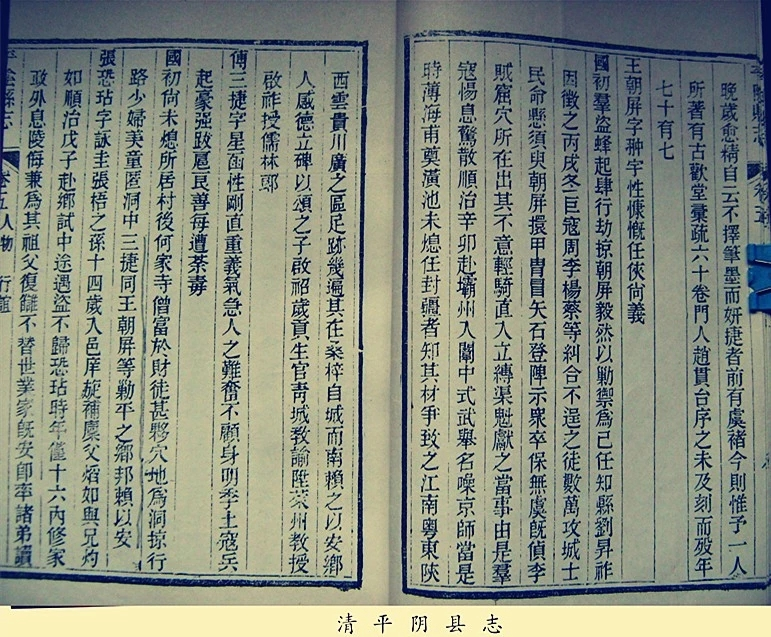 晚歲愈精自云不擇筆墨而妍捷者前有虞褚今則惟予一人
所著有古歡堂彙疏六十卷門人趙貫台序之未及刻而歿年
七十有七
王朝屏字翀宇性慷慨任俠尚義
國初羣盜蜂起肆行劫掠朝屏毅然以勦禦為己任知縣劉昇祚
因徵之丙戌冬巨寇周李楊蔡等糾合不逞之徒數萬攻城士
民命懸須臾朝屏擐甲冑冒矢石登陴示眾卒保無虞既偵李
賊窟穴所在出其不意輕騎直入立縛渠魁獻之當事由是羣
寇惕息驚散順治辛卯赴壩州入闈中式武舉名噪京師當是
時薄海甫奠潢池未熄任封疆者知其材爭致之江南粵東陝
西雲貴川廣之區足跡幾遍其在桑梓自城而南賴之以安鄉
人感德立碑以頌之子啟祒歲貢生官青城教諭陞萊州教授
啟祚授儒林郎
傅三捷字星函性剛直重義氣急人之難奮不顧身明季土寇兵
起豪强跋扈民善每遭荼毒
國初尚未熄所居村後何家寺僧富於財徒甚夥穴地為洞掠行
路少婦美童匿洞中三捷同王朝屏等勦平之鄉邦賴以安
張恐玷字詠圭張梧之孫十四歲入邑庠旋補廩父熖如與兄灼
如順治戊子赴鄉試中途遇盜不歸恐玷時年僅十六內修家
政外息陵侮兼為其祖父復讎不替世業家既安即率諸弟讀
平陰縣志
卷五人物
行誼
清平阴县志